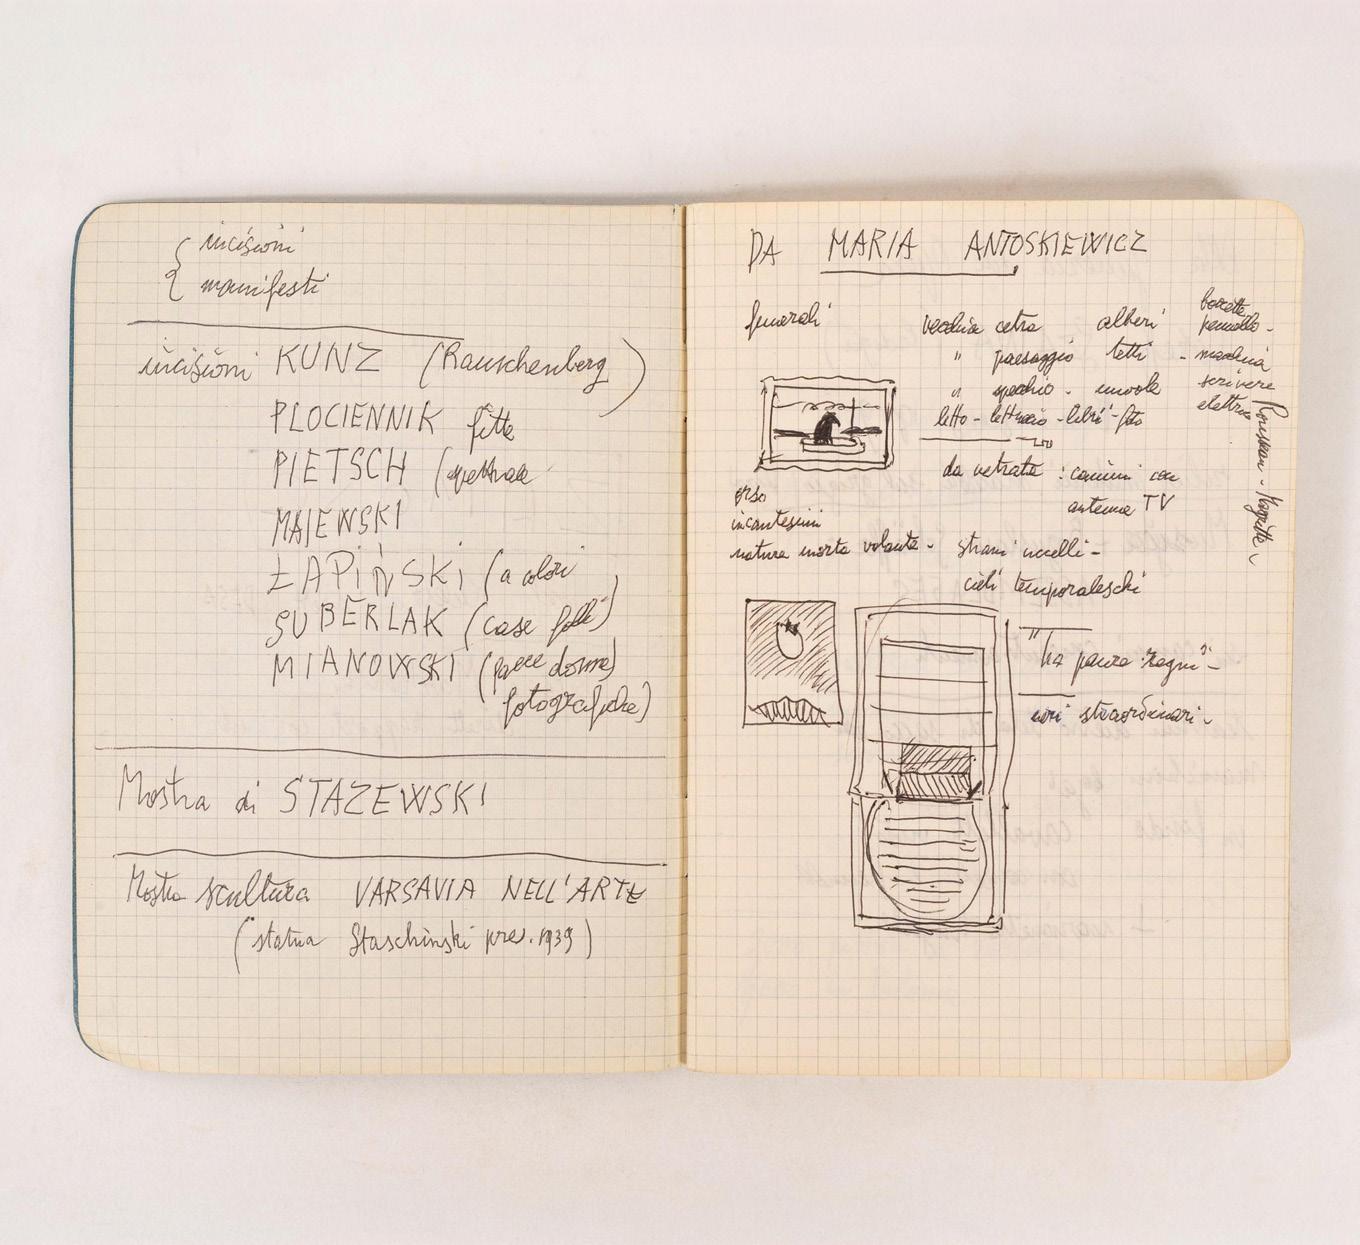 incisioni
manifesti
incisioni KUNZ (Rauschenberg)
PLOCIENNIK fitte
PIETSCH (spettrale
MAJEWSKI
ŁAPIŃSKI (a colori
SUBERLAK (case folli)
MIANOWSKI (facce donne)
fotografiche)
Mostra di STAZEWSKI
Mostra scultura VARSAVIA NELL'ARTE
(statua Staschinski pres. 1939)
DA MARIA ANTOSKIEWICZ
funerali
vecchia cetra alberi
" paesaggio tetti -
" specchio - nuvole
letto - - libri - foto
boccette
pennello -
macchina
scrivere
elettrica
Rousseau - Magritte
da vetrata : camini con
antenna TV
orso
incantesimi
natura morta volante - strani uccelli -
cieli temporaleschi
"ha paura ragni" -
straordinari -